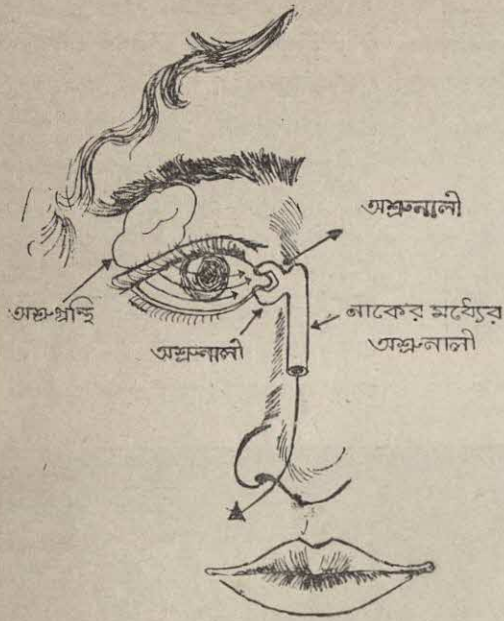 অশ্রুনালী
অশ্রুগ্রন্থি
অশ্রুনালী
নাকের মধ্যের
অশ্রুনালী